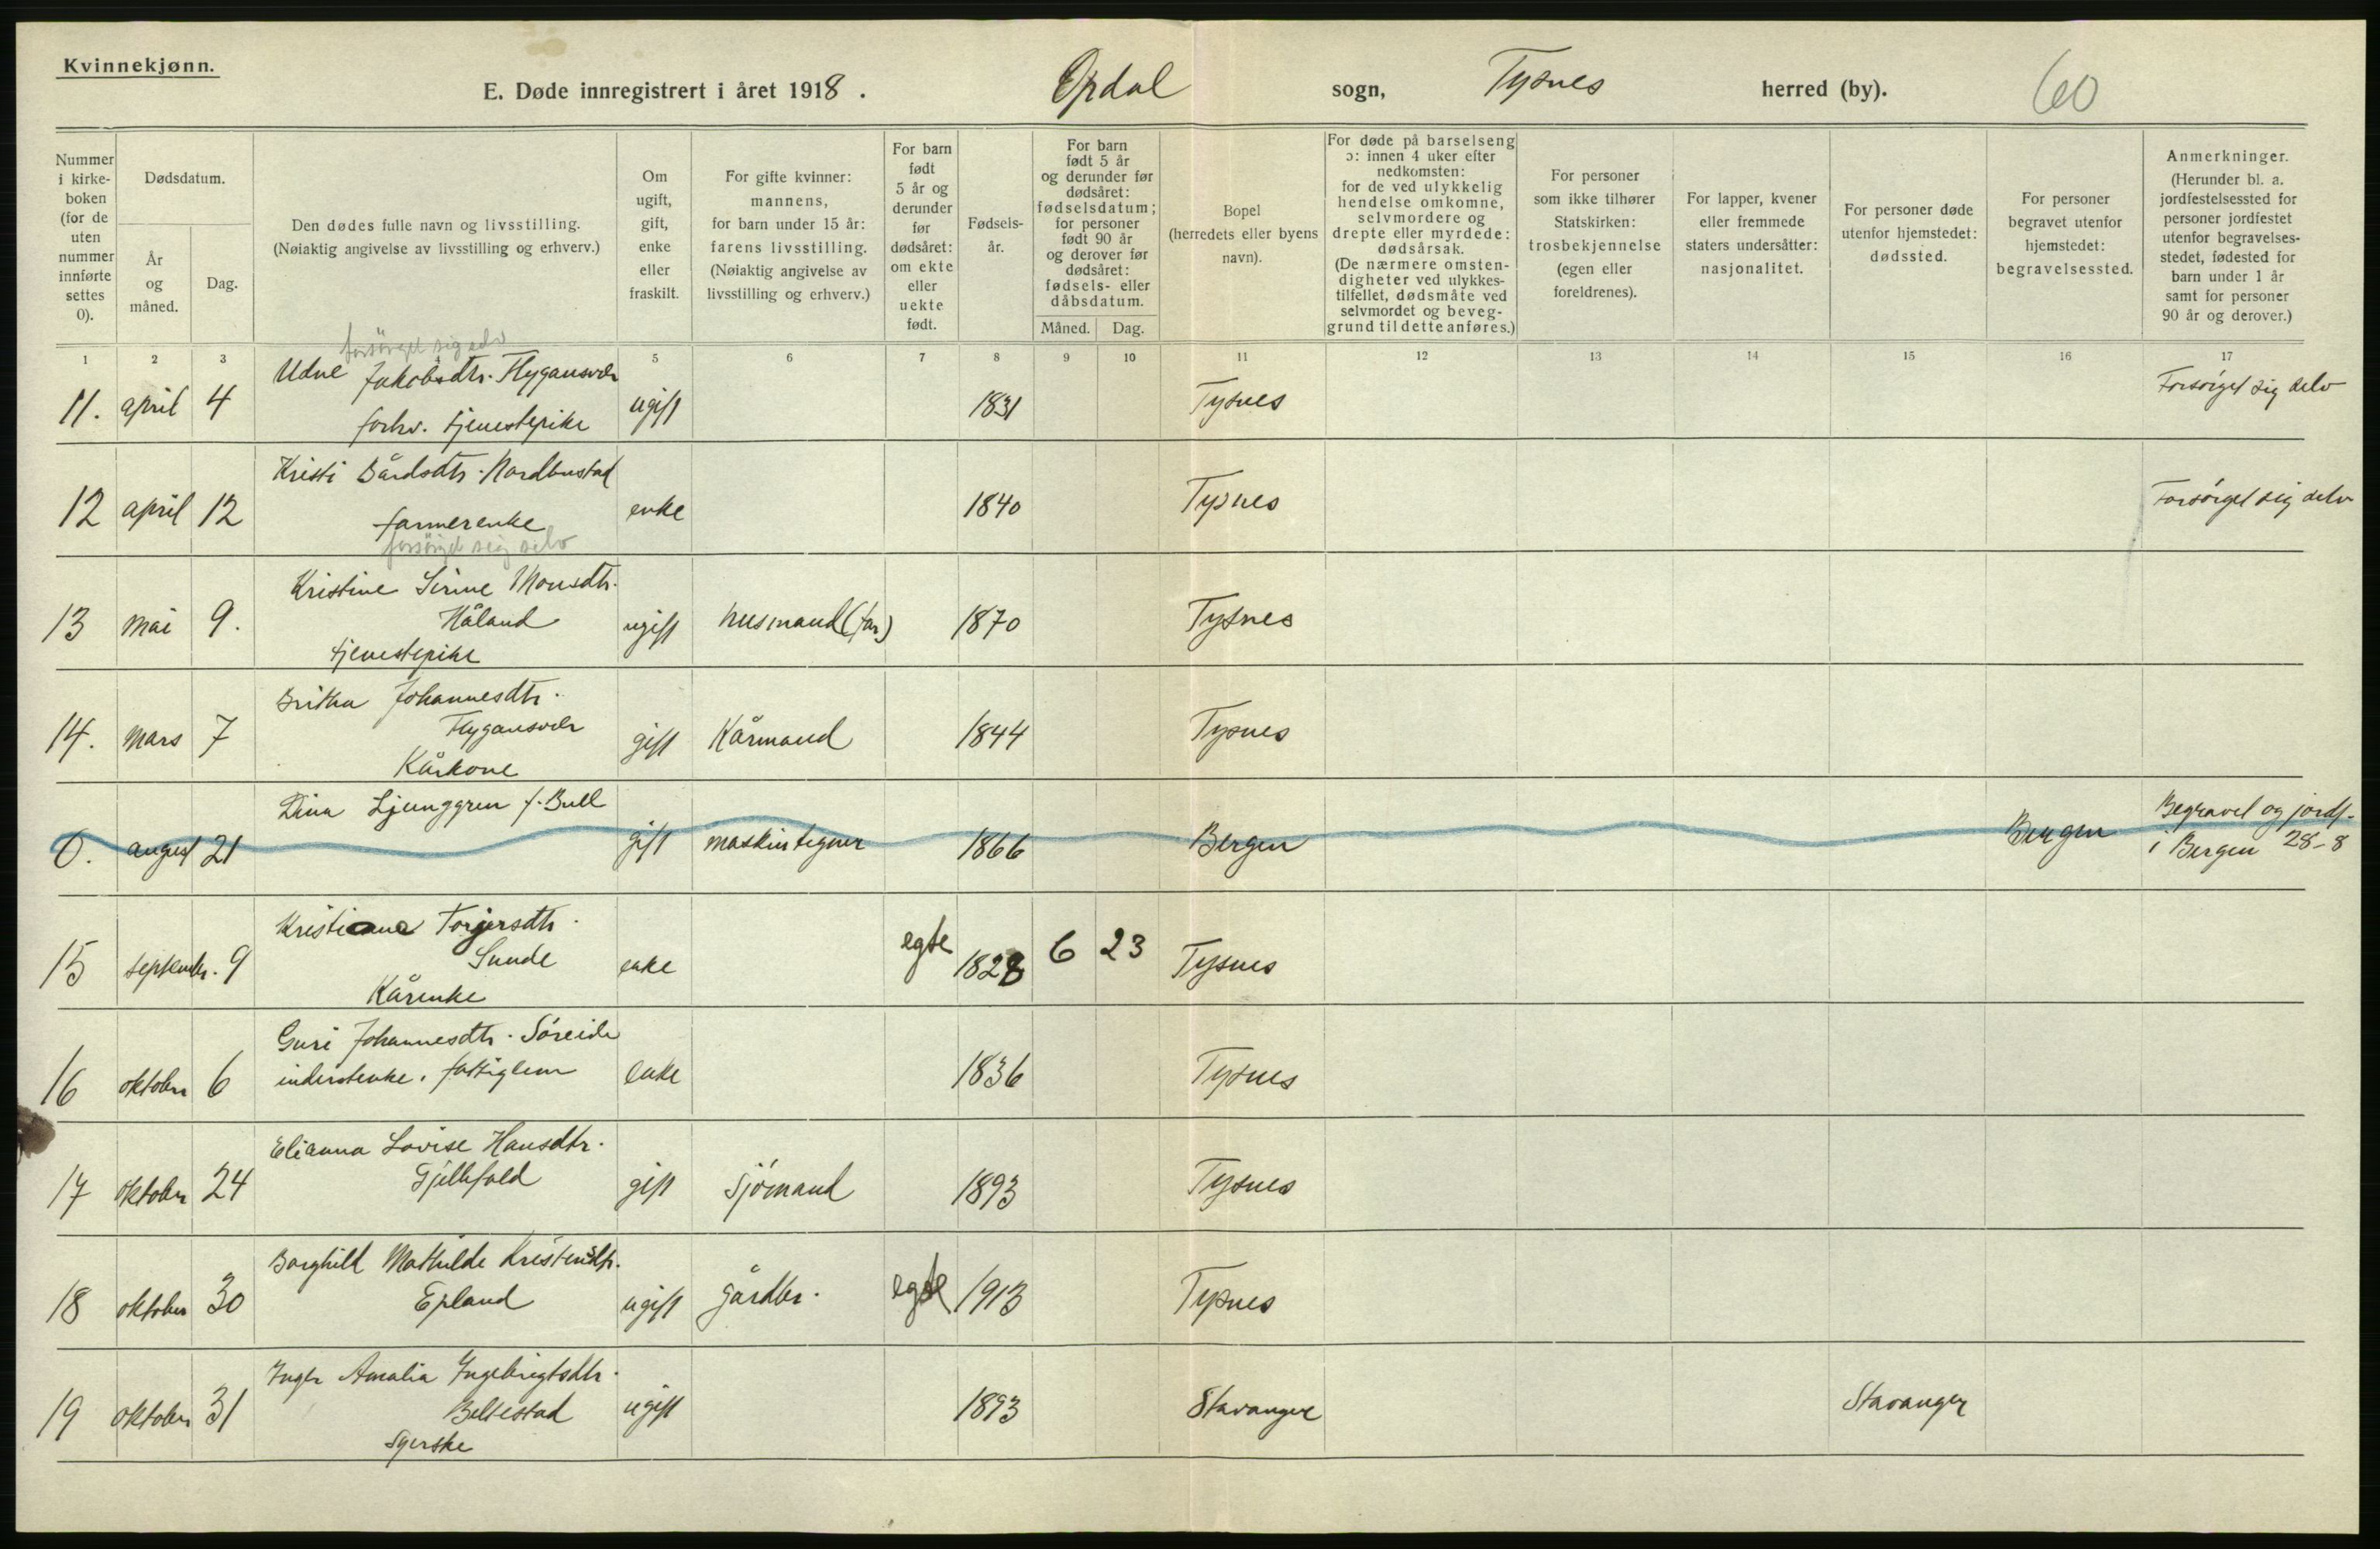 Kvinnekjønn.
E. Døde innregistrert i året 1918. Opdal sogn, Tysnes herred (by). 60
Nummer i kirkeboken (for de uten nummer innførte settes 0).
Dødsdatum.
År og måned.
Dag.
Den dødes fulle navn og livsstilling.
(Nøiaktig angivelse av livsstilling og erhverv.)
Om ugift, gift, enke eller fraskilt.
For gifte kvinner: mannens, for barn under 15 år: farens livsstilling. (Nøiaktig angivelse av livsstilling og erhverv.)
For barn født 5 år og derunder før dødsåret: om ekte eller uekte født.
Fødsels-år.
For barn født 5 år og derunder før dødsåret: fødselsdatum; for personer født 90 år og derover før dødsåret: fødsels- eller dåbsdatum.
Måned. Dag.
Bopel (herredets eller byens navn).
For døde på barselseng ɔ: innen 4 uker efter nedkomsten: for de ved ulykkelig hendelse omkomne, selvmordere og drepte eller myrdede: dødsårsak. (De nærmere omstendigheter ved ulykkestilfellet, dødsmåte ved selvmordet og beveggrund til dette anføres.)
For personer som ikke tilhører Statskirken: trosbekjennelse (egen eller foreldrenes).
For lapper, kvener eller fremmede staters undersåtter: nasjonalitet.
For personer døde utenfor hjemstedet: dødssted.
For personer begravet utenfor hjemstedet: begravelsessted.
Anmerkninger. (Herunder bl. a. jordfestelsessted for personer jordfestet utenfor begravelsesstedet, fødested for barn under 1 år samt for personer 90 år og derover.)
1 2 3 4 5 6 7 8 9 10 11 12 13 14 15 16 17
forsörget sig selv
11. april 4 Udne Jakobsdtr. Flygansvær ugift 1831 Tysnes Forsörget sig selv
forhv. tjenestepike
12 april 12 Kristi Bårdsdtr. Nordbustad enke 1840 Tysnes Forsörget sig selv
farmerenke
forsörget seig selv
13 mai 9. Kristine Sirine Monsdtr. ugift husmand (far) 1870 Tysnes
Håland
tjenestepike
14. mars 7 Britha Johannesdtr. gift Kårmand 1844 Tysnes
Flygansvær
Kårkone
0. august 21 Dina Ljunggren f. Bull gift maskintegner 1866 Bergen Bergen Begravet og jordf.
i Bergen 28-8
15 septembr. 9 Kristiane Torgersdtr. enke egte 1828 6 23 Tysnes
Sunde
Kårenke
16 oktober 6 Guri Johannesdtr. Söreide enke 1836 Tysnes
inderstenke. fattiglem
17 oktober 24 Elianna Lovise Hansdtr. gift sjömand 1893 Tysnes
Gjellefald
18 oktober 30 Borghild Mathilde Kristensdtr. ugift gårdbr. egte 1913 Tysnes
Epland
19 oktober 31 Inger Amalia Ingebrigtsdtr. ugift 1893 Stavanger Stavanger
Beltestad
Syerske